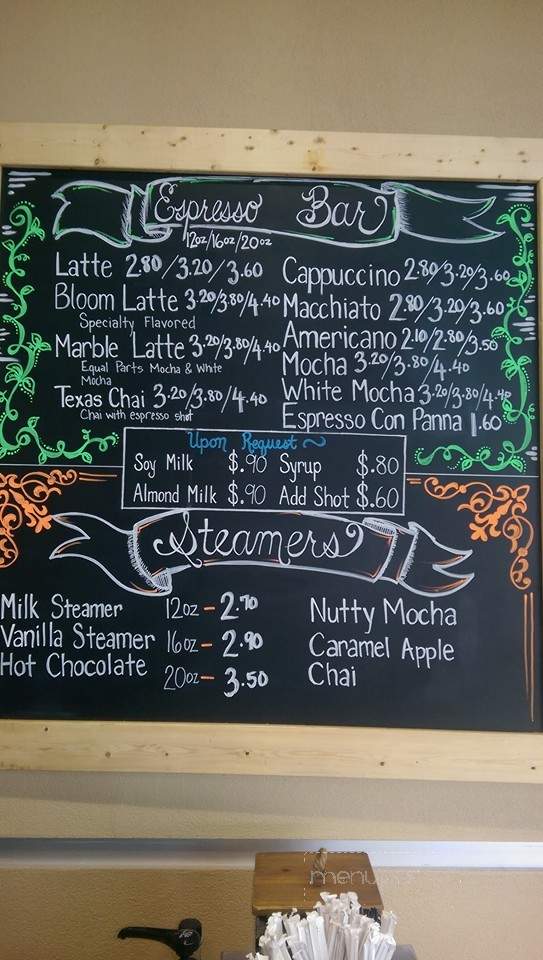 Espresso Bar
12oz/16oz/20oz
Latte 2.80/3.20/3.60
Bloom Latte 3.20/3.80/4.40
Specialty Flavored
Marble Latte 3.20/3.80/4.40
Equal Parts Mocha & White
Mocha
Texas Chai 3.20/3.80/4.40
Chai with espresso shot
Cappuccino 2.80/3.20/3.60
Macchiato 2.80/3.20/3.60
Americano 2.10/2.80/3.50
Mocha 3.20/3.80/4.40
White Mocha 3.20/3.80/4.40
Espresso Con Panna 1.60
Upon Request ~
Soy Milk $.90 Syrup $.80
Almond Milk $.90 Add Shot $.60
Steamers
Milk Steamer 12oz - 2.70
Vanilla Steamer 16oz - 2.90
Hot Chocolate 20oz - 3.50
Nutty Mocha
Caramel Apple
Chai